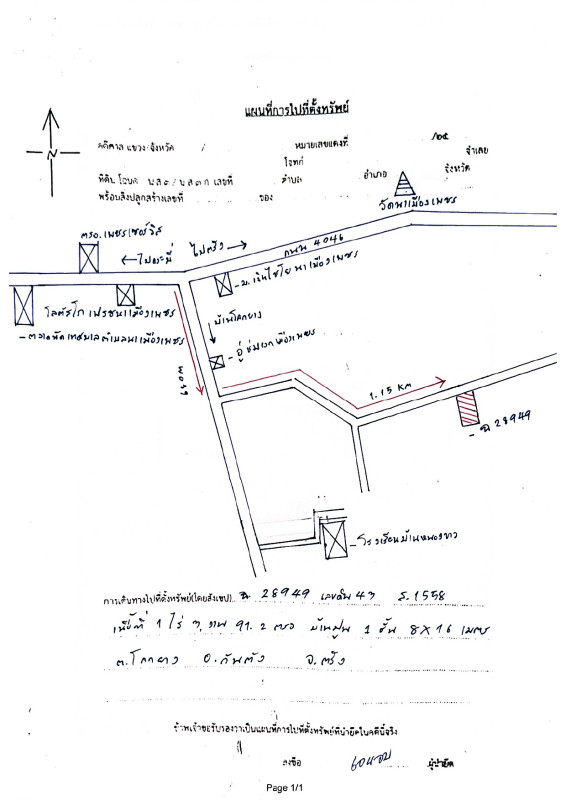 แผนที่การไปที่ตั้งทรัพย์
N
คดีศาล แขวง/จังหวัด / หมายเลขแดงที่ /๒๕
โจทก์ จำเลย
ที่ดิน โฉนด น.ส.๓/น.ส.๓ ก. เลขที่ ตำบล อำเภอ จังหวัด
พร้อมสิ่งปลูกสร้างเลขที่ ของ
วัดนาเมืองเพชร
ตรอ.เพชรเซอร์วิส
←ไปกระบี่ ไปตรัง
ถนน 4046
โลตัสโกเฟรชนาเมืองเพชร
-ตลาดนัดเทศบาลตำบลนาเมืองเพชร
บ้านโคกยาง
1.15 KM
-ฉ 28949
-โรงเรียนบ้านหนองขาว
การเดินทางไปที่ตั้งทรัพย์(โดยสังเขป) ฉ 28949 เลขดิน 43 ร.1558
เนื้อที่ 1 ไร่ 3 งาน 91.2 ตรว บ้านปูน 1 ชั้น 8X16 เมตร
ต.โคกยาง อ.กันตัง จ.ตรัง
ข้าพเจ้าขอรับรองว่าเป็นแผนที่การไปที่ตั้งทรัพย์ที่นำยึดในคดีนี้จริง
ลงชื่อ ผู้นำยึด
Page 1/1